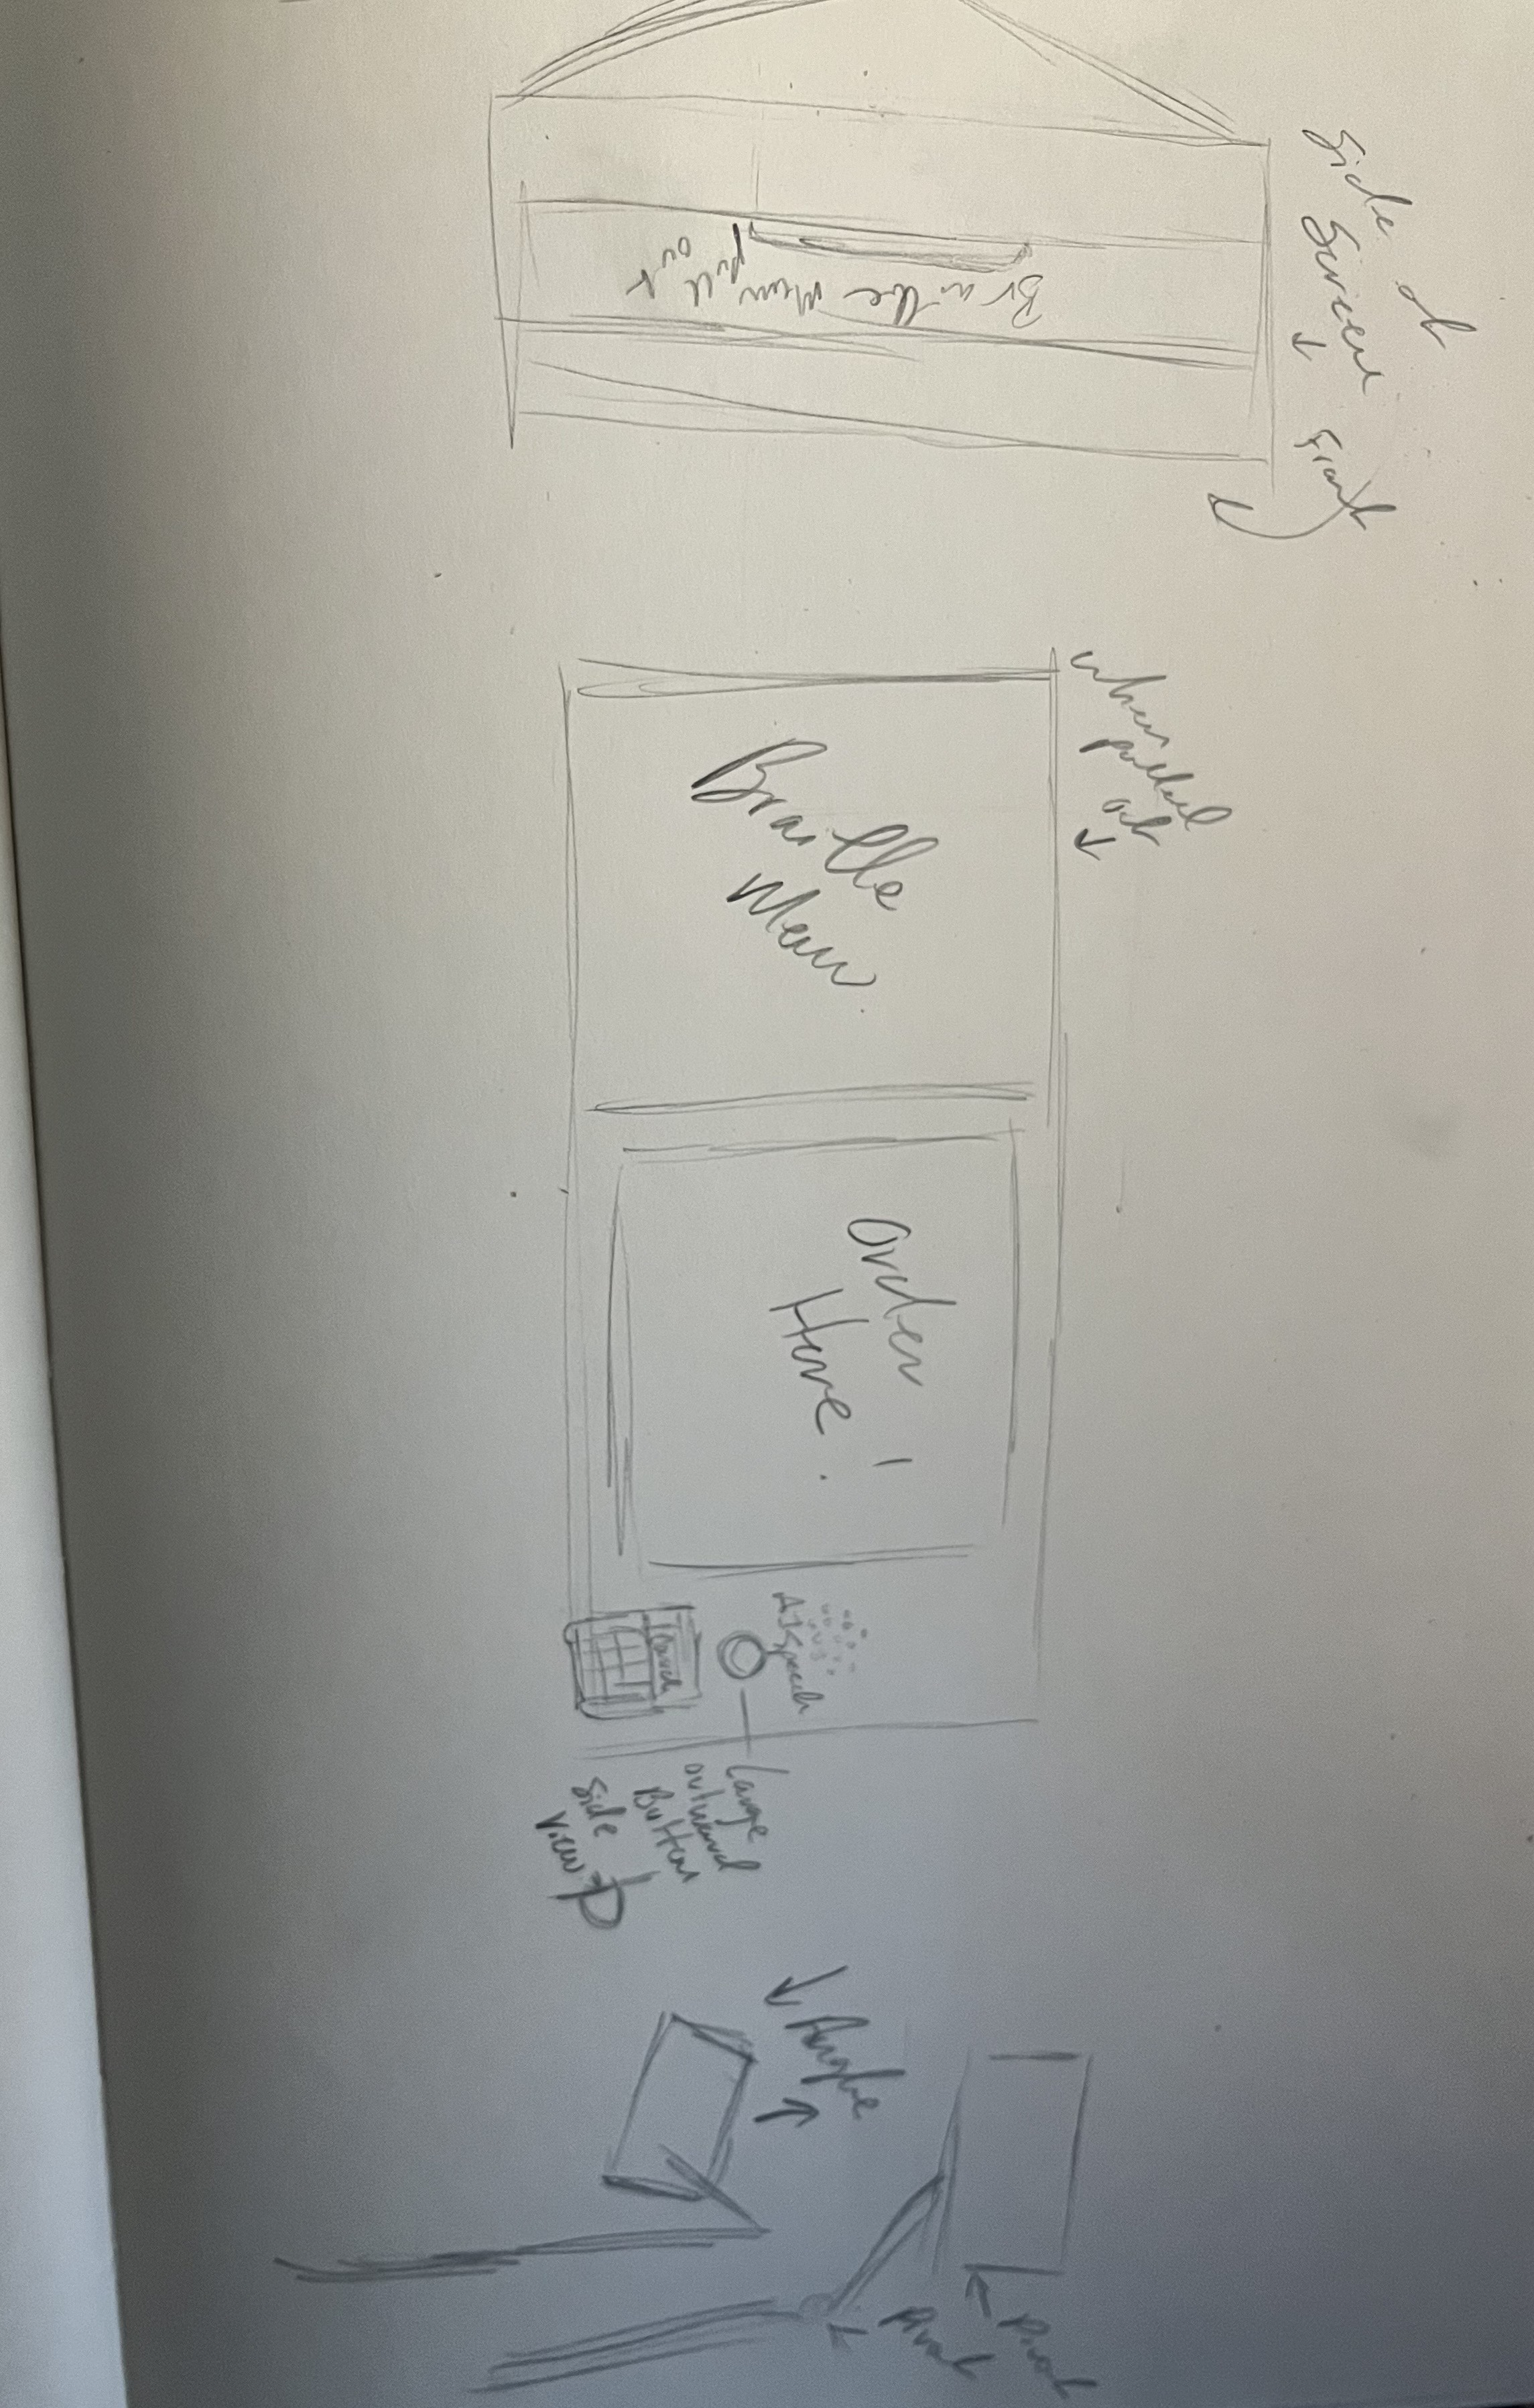 Side of
Screen
Front
Braille Menu pull
out
when
pulled
out
Braille
Menu
Order
Here!
AI Speech
Large
outward
Button
Side
View
Angle
Pivot
Pivot